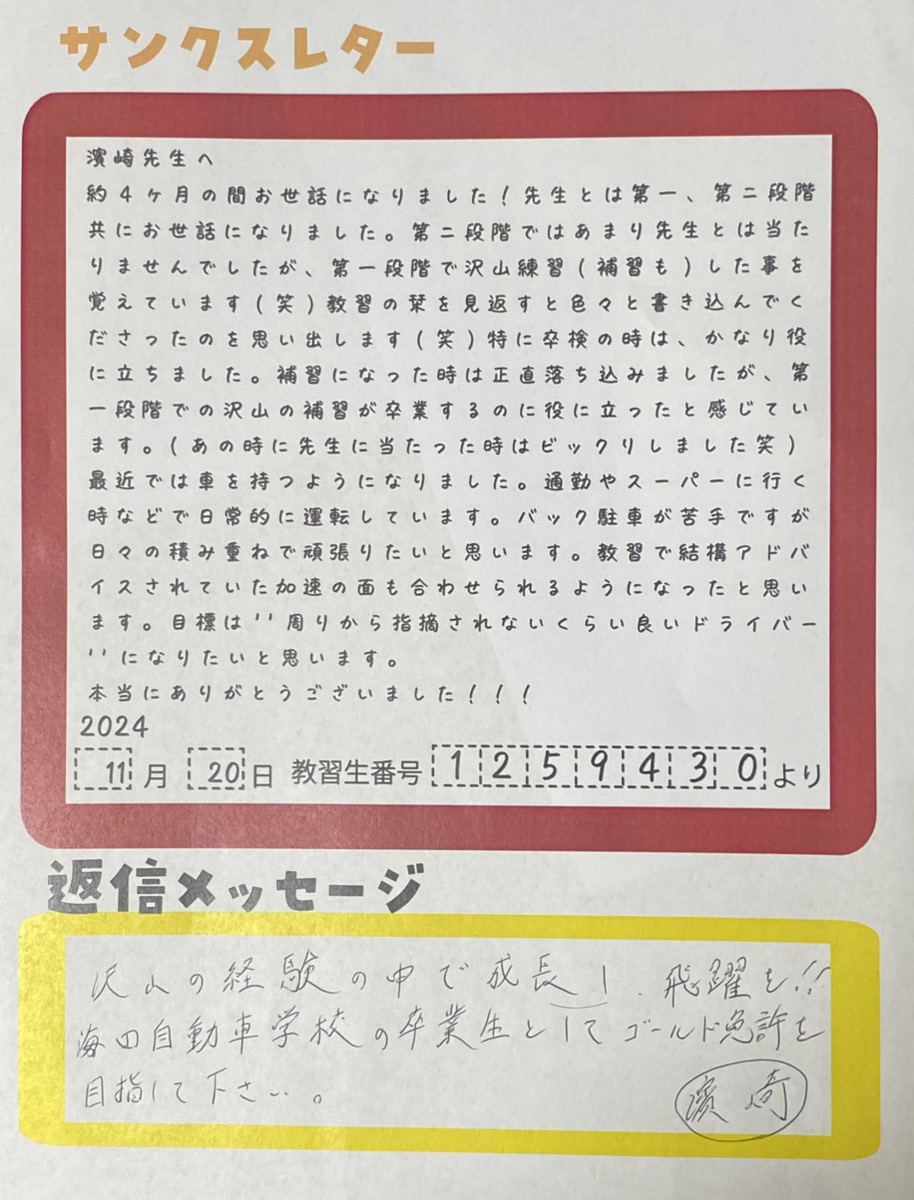 サンクスレター
濱崎先生へ
約4ヶ月の間お世話になりました！先生とは第一、第二段階
共にお世話になりました。第二段階ではあまり先生とは当た
りませんでしたが、第一段階で沢山練習(補習も)した事を
覚えています(笑)教習の栞を見返すと色々と書き込んでく
ださったのを思い出します(笑)特に卒検の時は、かなり役
に立ちました。補習になった時は正直落ち込みましたが、第
一段階での沢山の補習が卒業するのに役に立ったと感じてい
ます。(あの時に先生に当たった時はビックリしました笑)
最近では車を持つようになりました。通勤やスーパーに行く
時などで日常的に運転しています。バック駐車が苦手ですが
日々の積み重ねで頑張りたいと思います。教習で結構アドバ
イスされていた加速の面も合わせられるようになったと思い
ます。目標は''周りから指摘されないくらい良いドライバー
''になりたいと思います。
本当にありがとうございました！！！
2024
11月 20日 教習生番号 1259430より
返信メッセージ
沢山の経験の中で成長し、飛躍を!!
海田自動車学校の卒業生としてゴールド免許を
目指して下さい。
濱崎